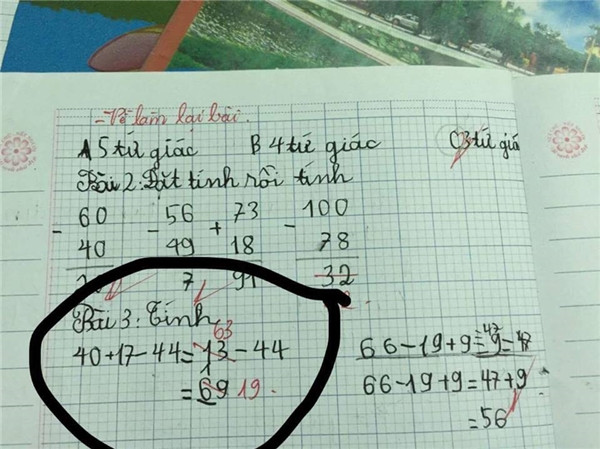 - Về làm lại bài.
A 5 tứ giác B 4 tứ giác C 3 tứ giá
Bài 2: Đặt tính rồi tính
60 56 73 100
- - + -
40 49 18 78
7 91 32
Bài 3: Tính
63
40+17-44=13-44
=69 19.
66-19+9=9-47
47
66-19+9=47+9
=56